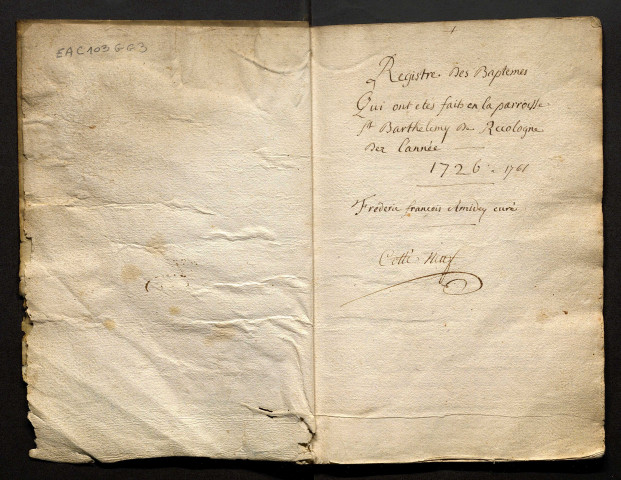 EAC103GG3
Registre Des Baptemes
Qui ont etes fait en la parroisse
st Barthelemy de Recologne
Dez L'année
1726 - 1761
Frederic françois Amidey curé
Cotté Neuf